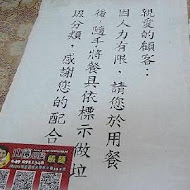 親愛的顧客：
因人力有限，請您於用餐
後，隨手將餐具依標示做垃
圾分類，感謝您的配合